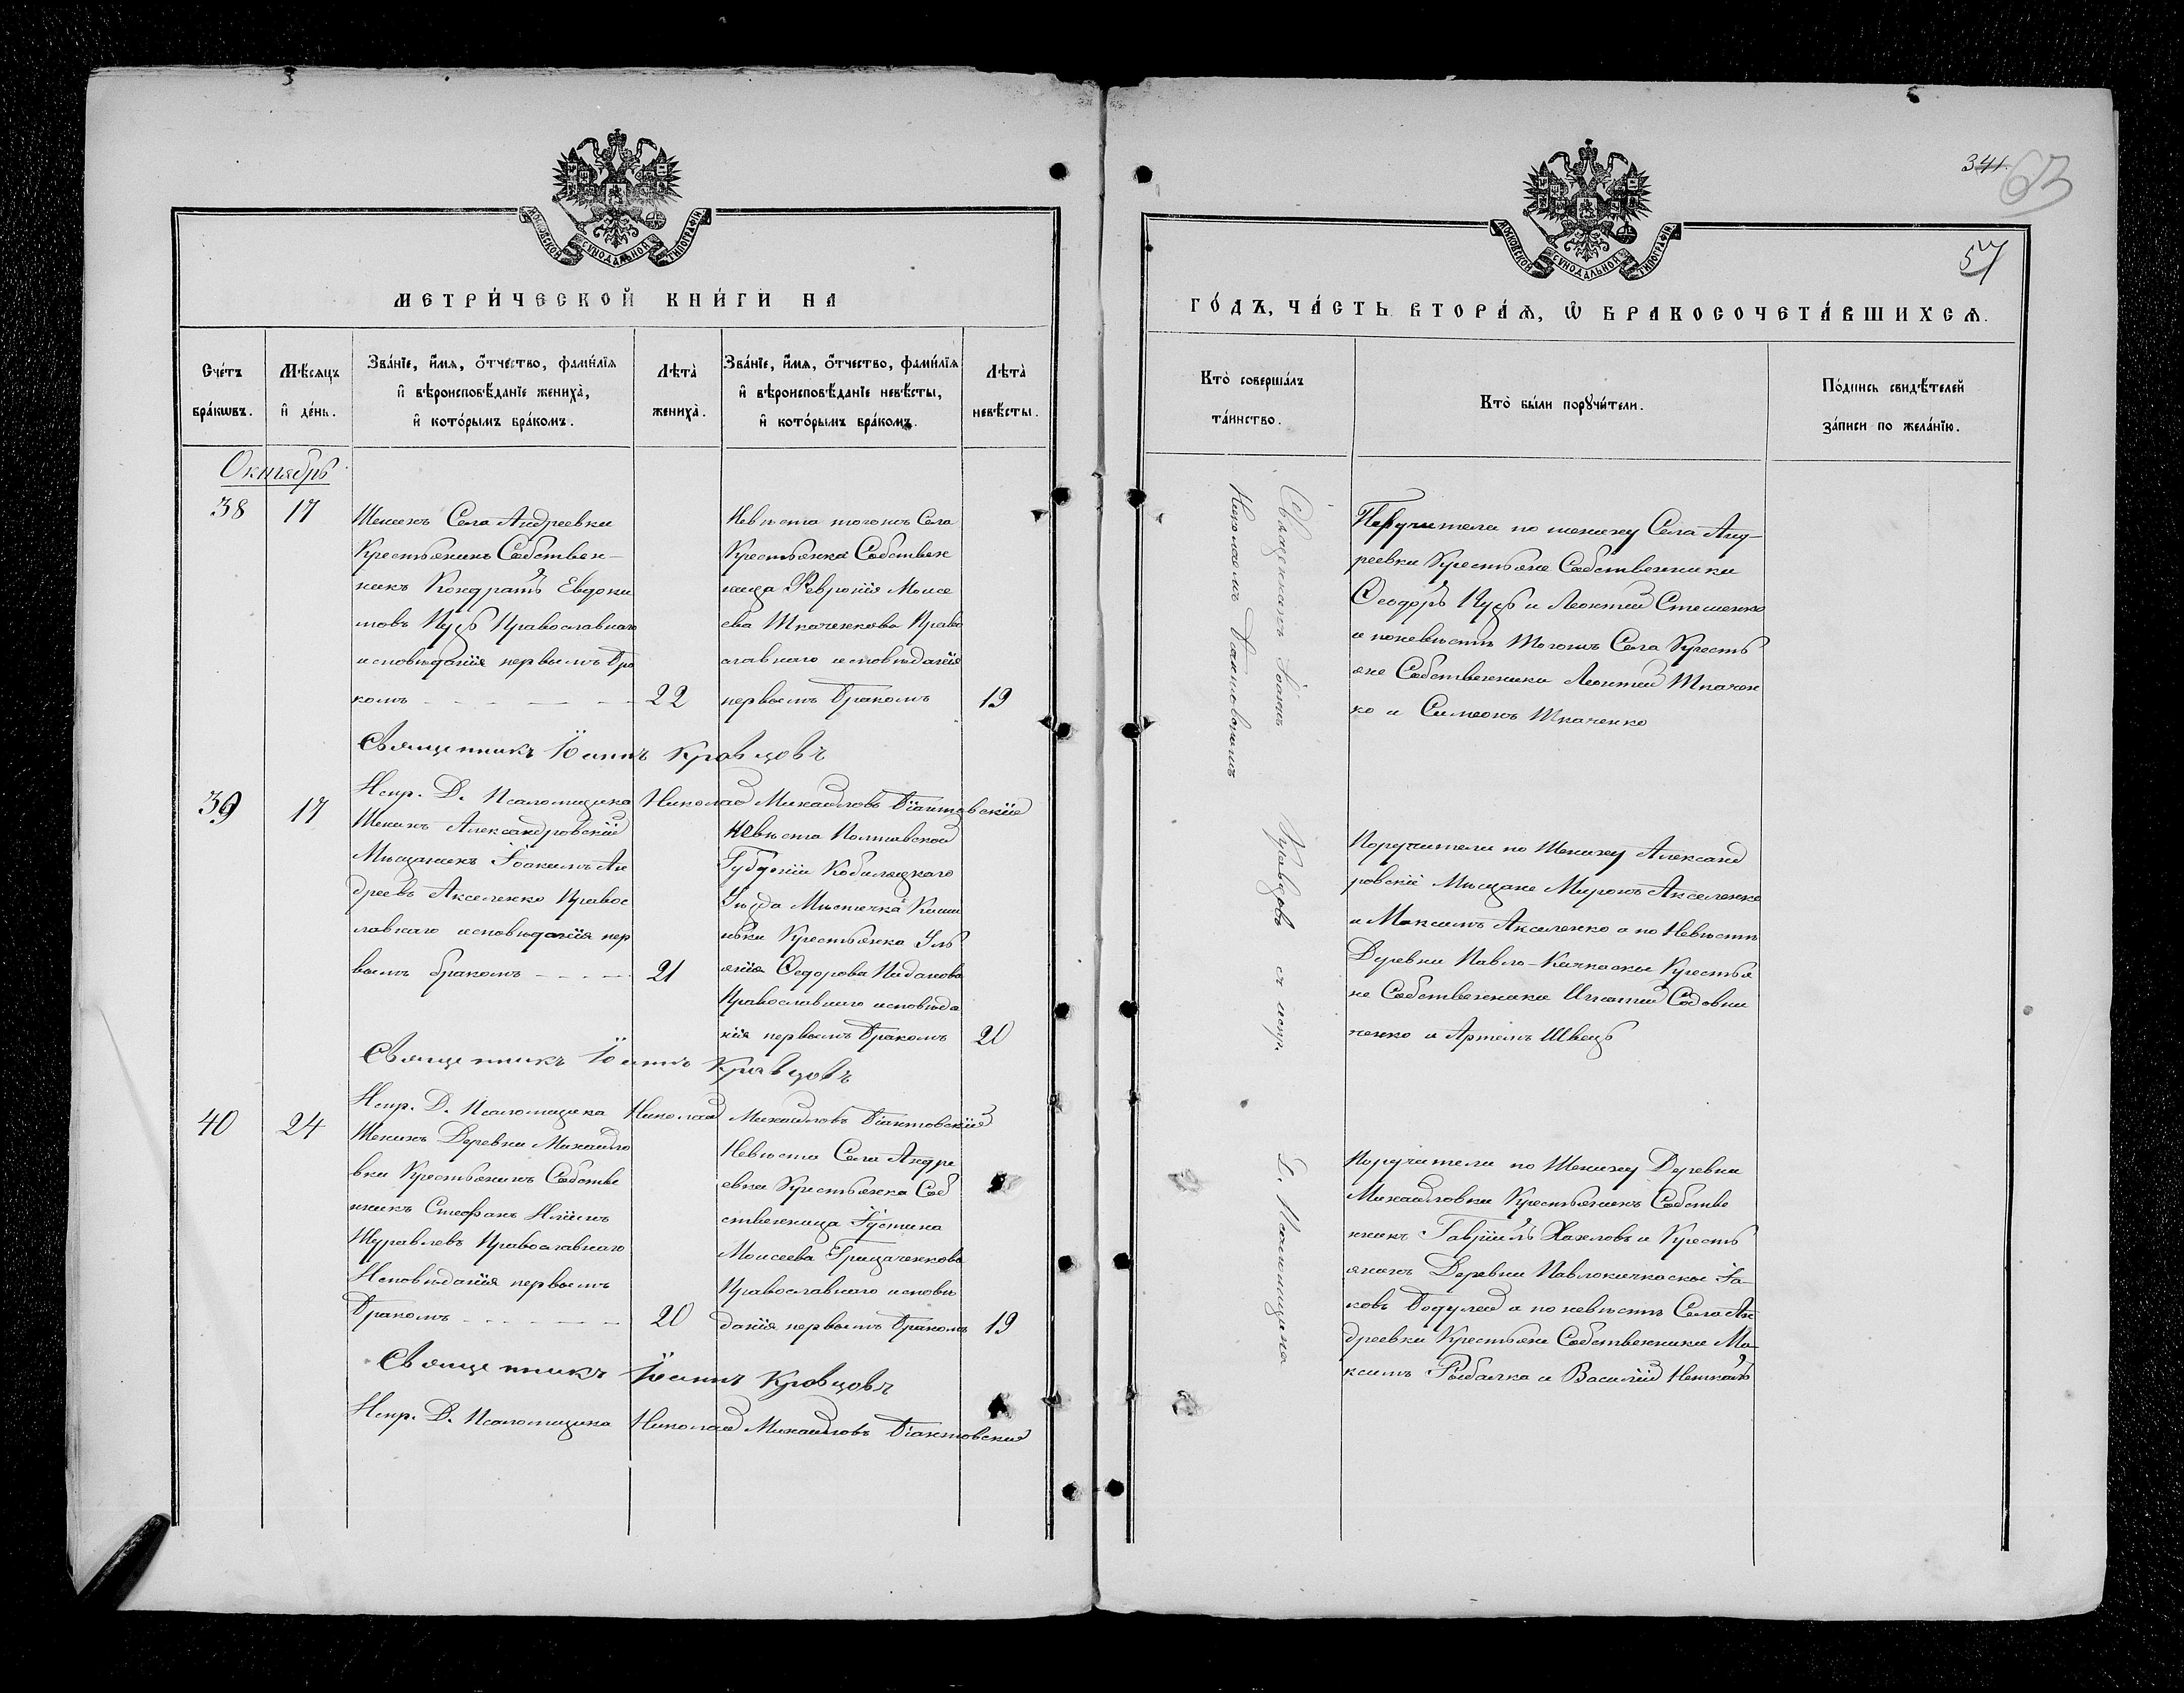 МОСКОВСКОЙ СУНОДАЛЬНОЙ ТИПОГРАФІИ
МЕТРИ́ЧЕСКОЙ КНИ́ГИ НА
Сче́тъ бра́кѡвъ.
Мѣ́сяцъ и҆ де́нь.
Зва́нїе, и҆́мя, ѻ҆́тчество, фами́лїя
и҆ вѣроисповѣ́данїе жениха̀,
и҆ кото́рымъ бра́комъ.
Лѣта̀ жениха̀.
Зва́нїе, и҆́мя, ѻ҆́тчество, фами́лїя
и҆ вѣроисповѣ́данїе невѣ́сты,
и҆ кото́рымъ бра́комъ.
Лѣта̀ невѣ́сты.
Октябрь
38
17
Женихъ Села Андреевки
Крестьянинъ Собствен-
никъ Кондратъ Евдоки
мовъ Куцъ Православнаго
исповѣданія первымъ Бра
комъ
22
Невѣста тогожъ Села
Крестьянка Собствен
ница Февронія Моисе
ева Ткаченкова Право
славнаго исповѣданія
первымъ Бракомъ
19
Священникъ Іоаннъ Кравцовъ
Испр. Д. Псаломщика Николай Михайловъ Діантовскій
39
17
Женихъ Александровскій
Мѣщанинъ Іоакимъ Ан
дреевъ Акселенко Правос
лавнаго исповѣданія пер
вымъ бракомъ
21
Невѣста Полтавской
Губерніи Кобиляцкаго
Уѣзда Мѣстечка Киши
нъки Крестьянка Уль
янія Ѳеодорова
Православнаго исповѣда
нія первымъ Бракомъ
20
Священникъ Іоаннъ Кравцовъ
Испр. Д. Псаломщика Николай Михайловъ Діантовскій
40
24
Женихъ Деревни Михайло
вки Крестьянинъ Собстве
нникъ Стефанъ Иліинъ
Журавлевъ Православнаго
Исповѣданія первымъ
Бракомъ
20
Невѣста Села Андре
евки Крестьянка Соб
ственница Іустина
Моисеева Грищаченкова
Православнаго исповѣ
данія первымъ Бракомъ
19
Священникъ Іоаннъ Кравцовъ
Испр. Д. Псаломщика Николай Михайловъ Діантовскій
341.
63
57
МОСКОВСКОЙ СУНОДАЛЬНОЙ ТИПОГРАФІИ
ГО́ДЪ, ЧА́СТЬ ВТОРА́Ѧ, Ѡ҆ БРАКОСОЧЕТА́ВШИХСѦ.
Кто̀ соверша́лъ
та́инство.
Кто̀ бы́ли порꙋчи́тели.
По́дпись свидѣ́телей
за́писи по жела́нїю.
Священникъ Іоаннъ Кравцовъ съ испр. Д. Псаломщика
Николаемъ Діантовскимъ
Поручители по жениху Села Анд-
реевки Крестьяне Собственники
Ѳеодоръ Куцъ и Леонтій Стешенко
а поневѣстѣ Тогожъ Села Кресть
яне Собственники Леонтій Ткачен
ко и Симеонъ Ткаченко
Поручители по Жениху Александ
ровскіе Мѣщане Миронъ Акселенко
и Максимъ Акселенко а по Невѣстѣ
Деревни Павло-Кичкаски Крестья
не Собственники Игнатій Садовни
ченко и Артемъ Швецъ
Поручители по Жениху Деревни
Михайловки Крестьянинъ Собстве
нникъ Гавріилъ Хахловъ и Кресть
янинъ Деревни Павлокичкаски Іа-
ковъ Бодулей а по невѣстѣ Села Ан
дреевки Крестьяне Собственники Ма
ксимъ Рыбалка и Василій